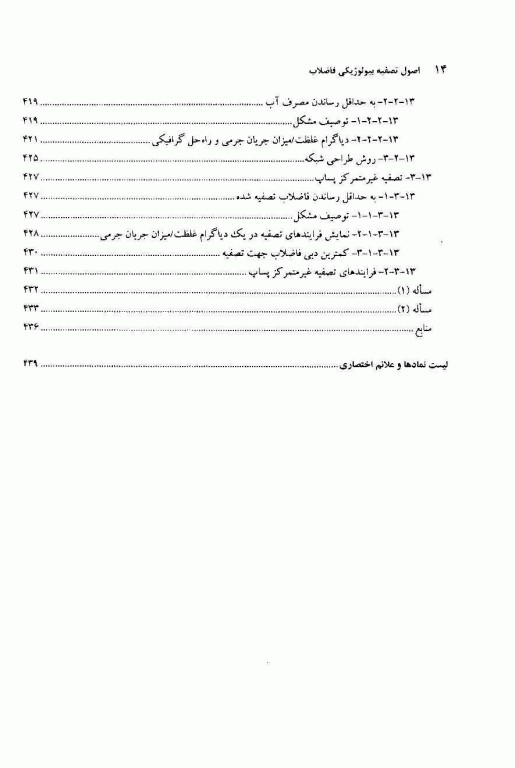 ۱۴ اصول تصفیه بیولوژیکی فاضلاب
۱۳-۲-۲- به حداقل رساندن مصرف آب ........ ۴۱۹
۱۳-۲-۲-۱- توصیف مشکل ........ ۴۱۹
۱۳-۲-۲-۲- دیاگرام غلظت/میزان جریان جرمی و راه‌حل گرافیکی ........ ۴۲۱
۱۳-۲-۳- روش طراحی شبکه ........ ۴۲۵
۱۳-۳- تصفیه غیرمتمرکز پساپ ........ ۴۲۷
۱۳-۳-۱- به حداقل رساندن فاضلاب تصفیه شده ........ ۴۲۷
۱۳-۳-۱-۱- توصیف مشکل ........ ۴۲۷
۱۳-۳-۱-۲- نمایش فرایندهای تصفیه در یک دیاگرام غلظت/میزان جریان جرمی ........ ۴۲۸
۱۳-۳-۱-۳- کمترین دبی فاضلاب جهت تصفیه ........ ۴۳۰
۱۳-۳-۲- فرایندهای تصفیه غیرمتمرکز پساپ ........ ۴۳۱
مسأله (۱) ........ ۴۳۲
مسأله (۲) ........ ۴۳۳
منابع ........ ۴۳۶
لیست نمادها و علائم اختصاری ........ ۴۳۹